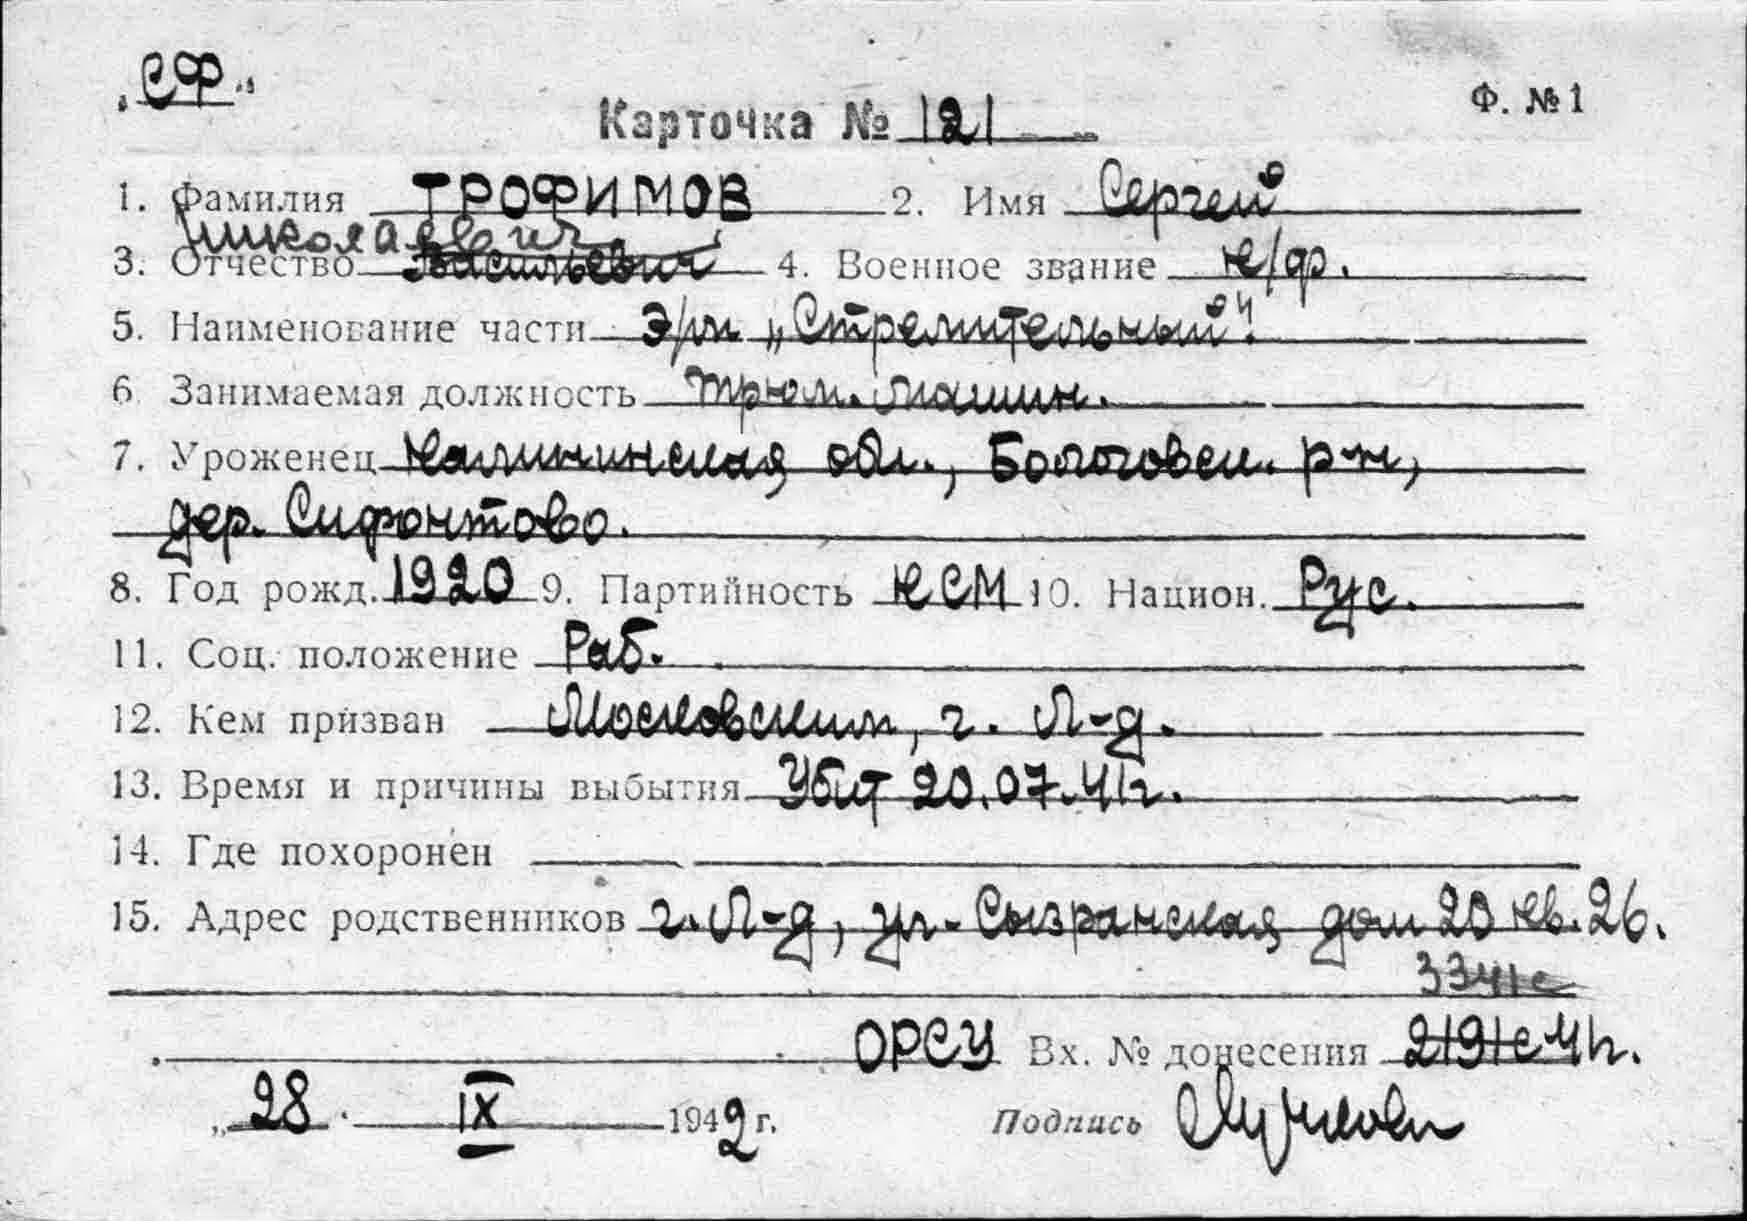 „СФ"
Ф. №1
Карточка № 121
1. Фамилия ТРОФИМОВ 2. Имя Сергей
Николаевич
3. Отчество Васильевич 4. Военное звание к/ф.
5. Наименование части Э/м „Стремительный".
6 Занимаемая должность трюм. машин.
7. Уроженец Калининская обл., Бологовск. р-н,
дер. Сифонтово.
8. Год рожд. 1920 9. Партийность КСМ 10. Национ. Рус.
11. Соц. положение Раб.
12. Кем призван Московским, г. Л-д.
13. Время и причины выбытия Убит 20.07.41г.
14. Где похоронен
15. Адрес родственников г. Л-д, ул. Сызранская дом 20 кв. 26.
3341с
ОРСУ Вх. № донесения 2191с 41г.
„28 IX 1942 г. Подпись